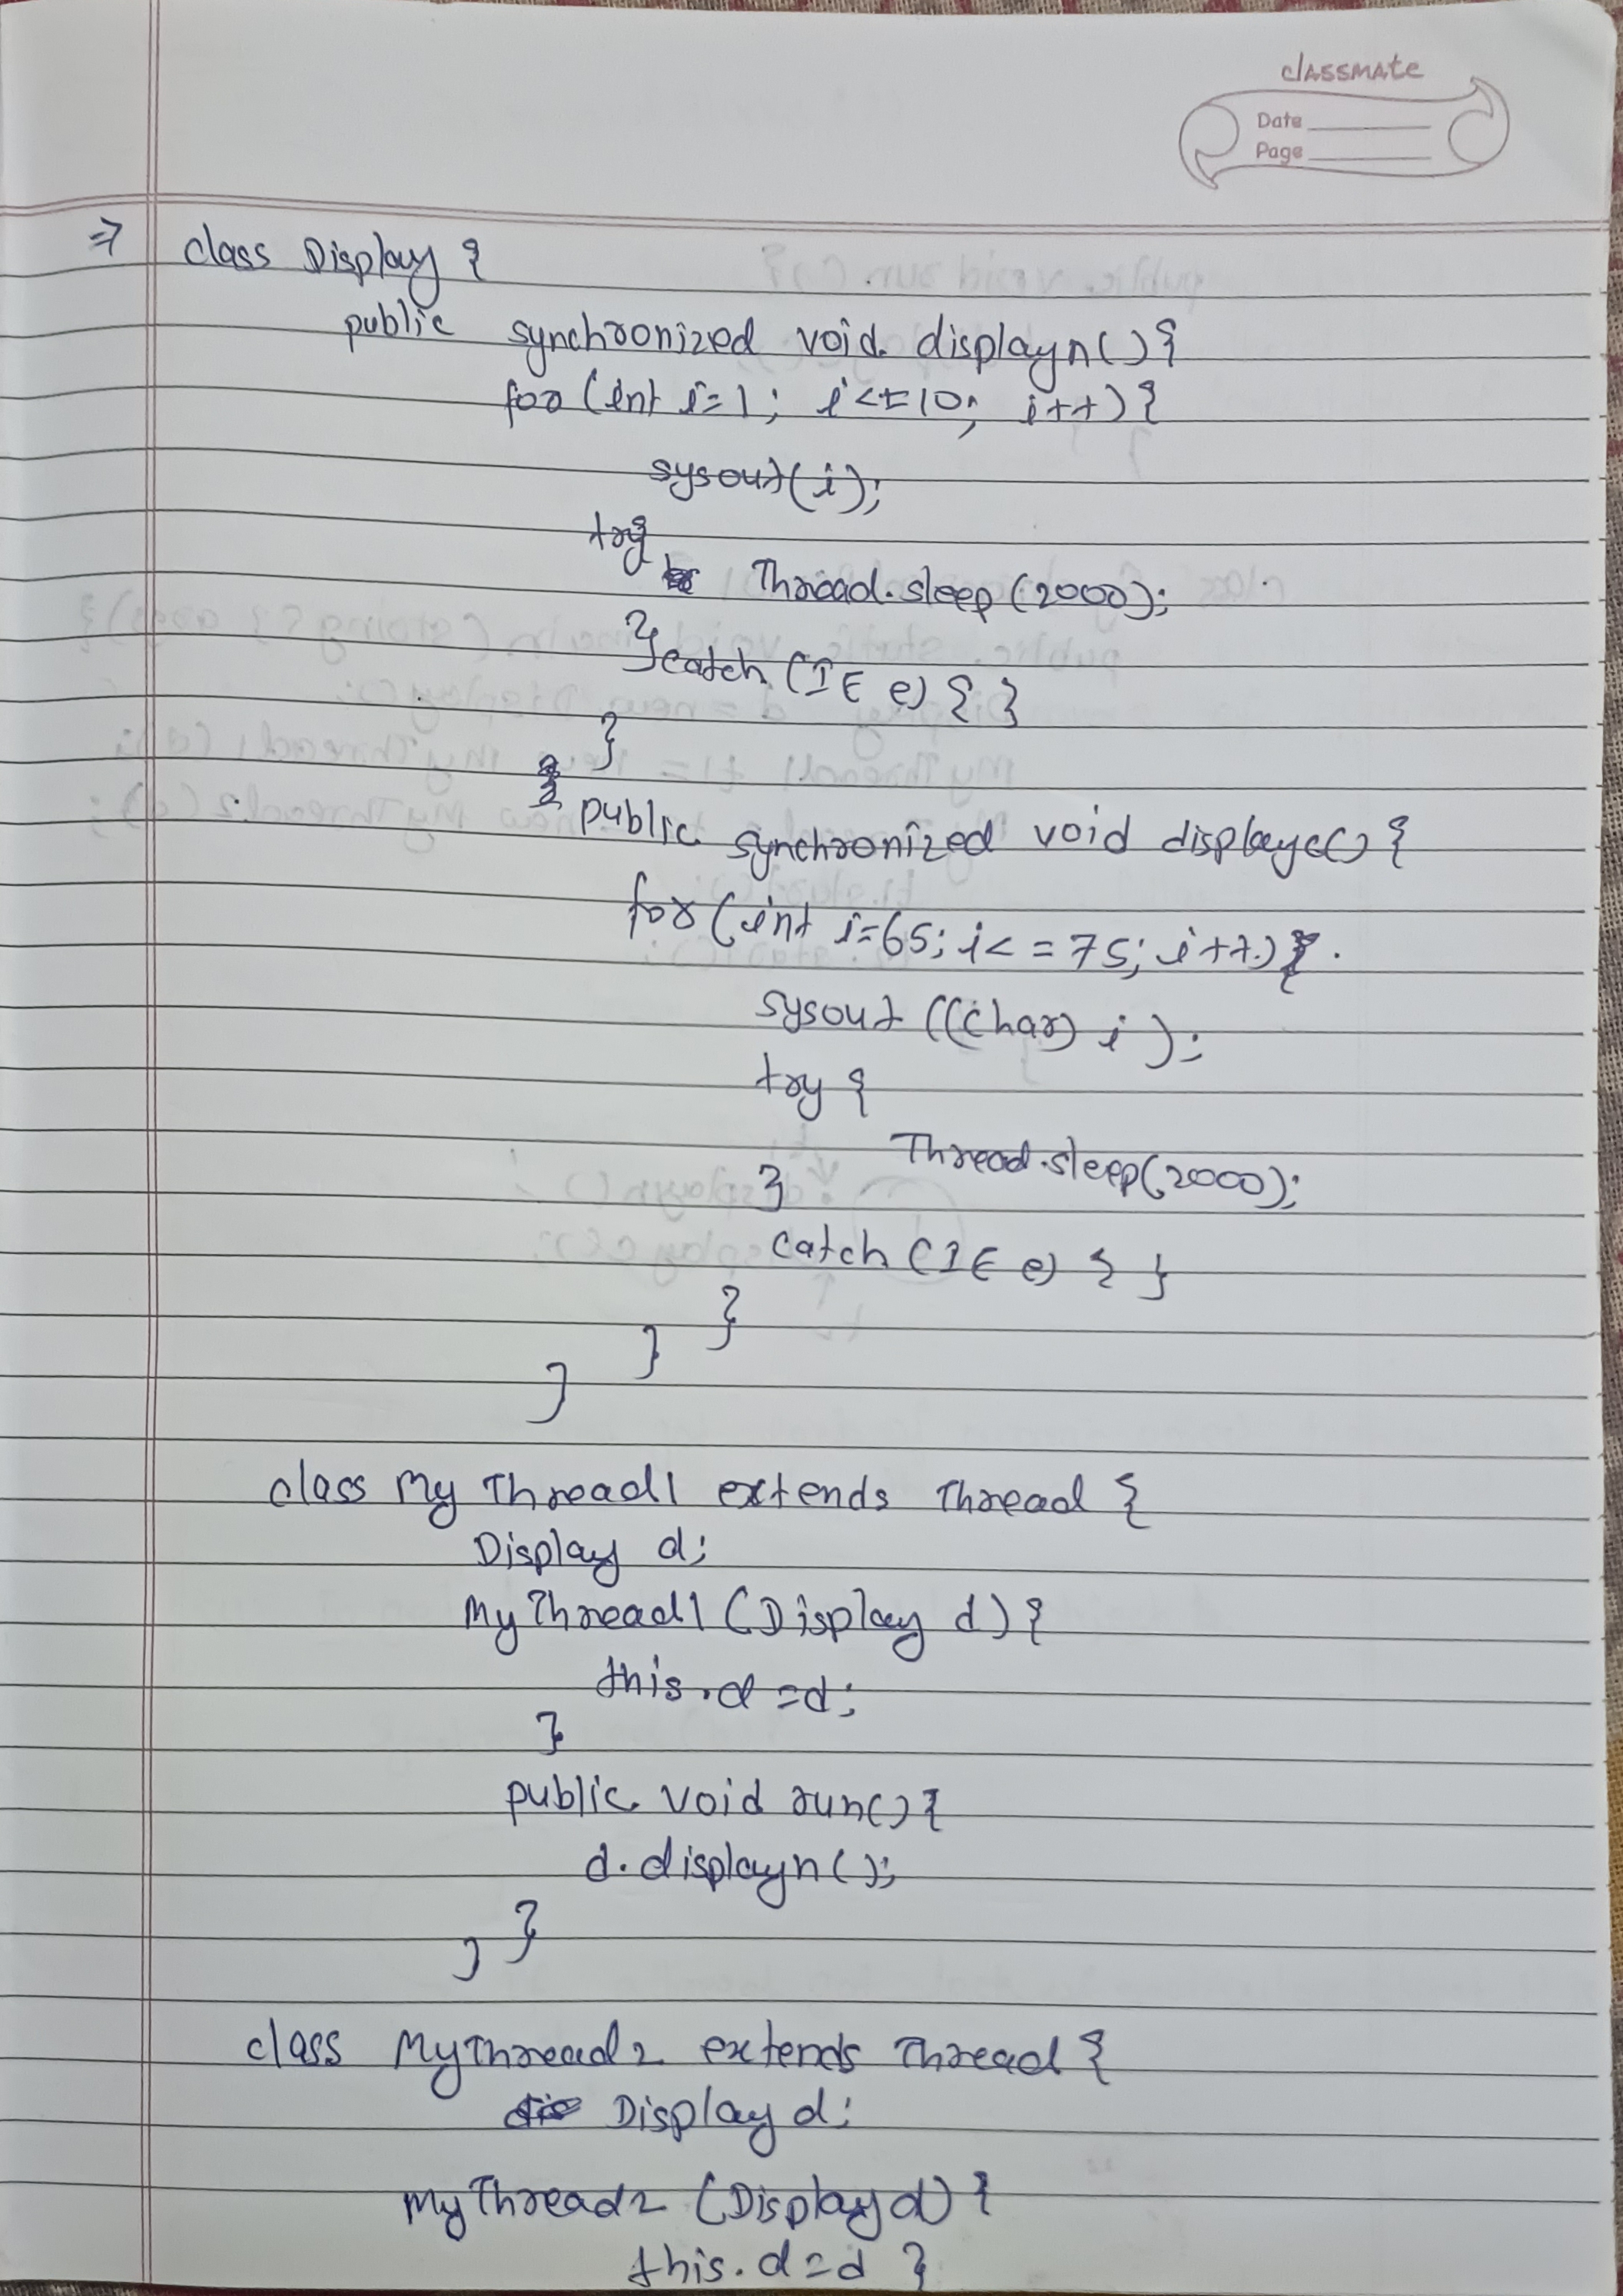 classmate
Date
Page
⇒ class Display {
public synchronized void displayn(){
for (int i=1; i<=10; i++){
sysout(i);
try{
Thread.sleep(2000);
}catch (IE e) { }
}
}
public synchronized void displayc() {
for (int i=65; i<=75; i++) {
sysout ((char) i );
try {
Thread.sleep(2000);
}
catch (IE e) { }
}
}
}
class My Thread1 extends Thread {
Display d;
My Thread1 (Display d) {
this.d =d;
}
public void run(){
d.displayn();
}
}
class MyThread2 extends Thread {
Display d;
My Thread2 (Display d) {
this.d=d }